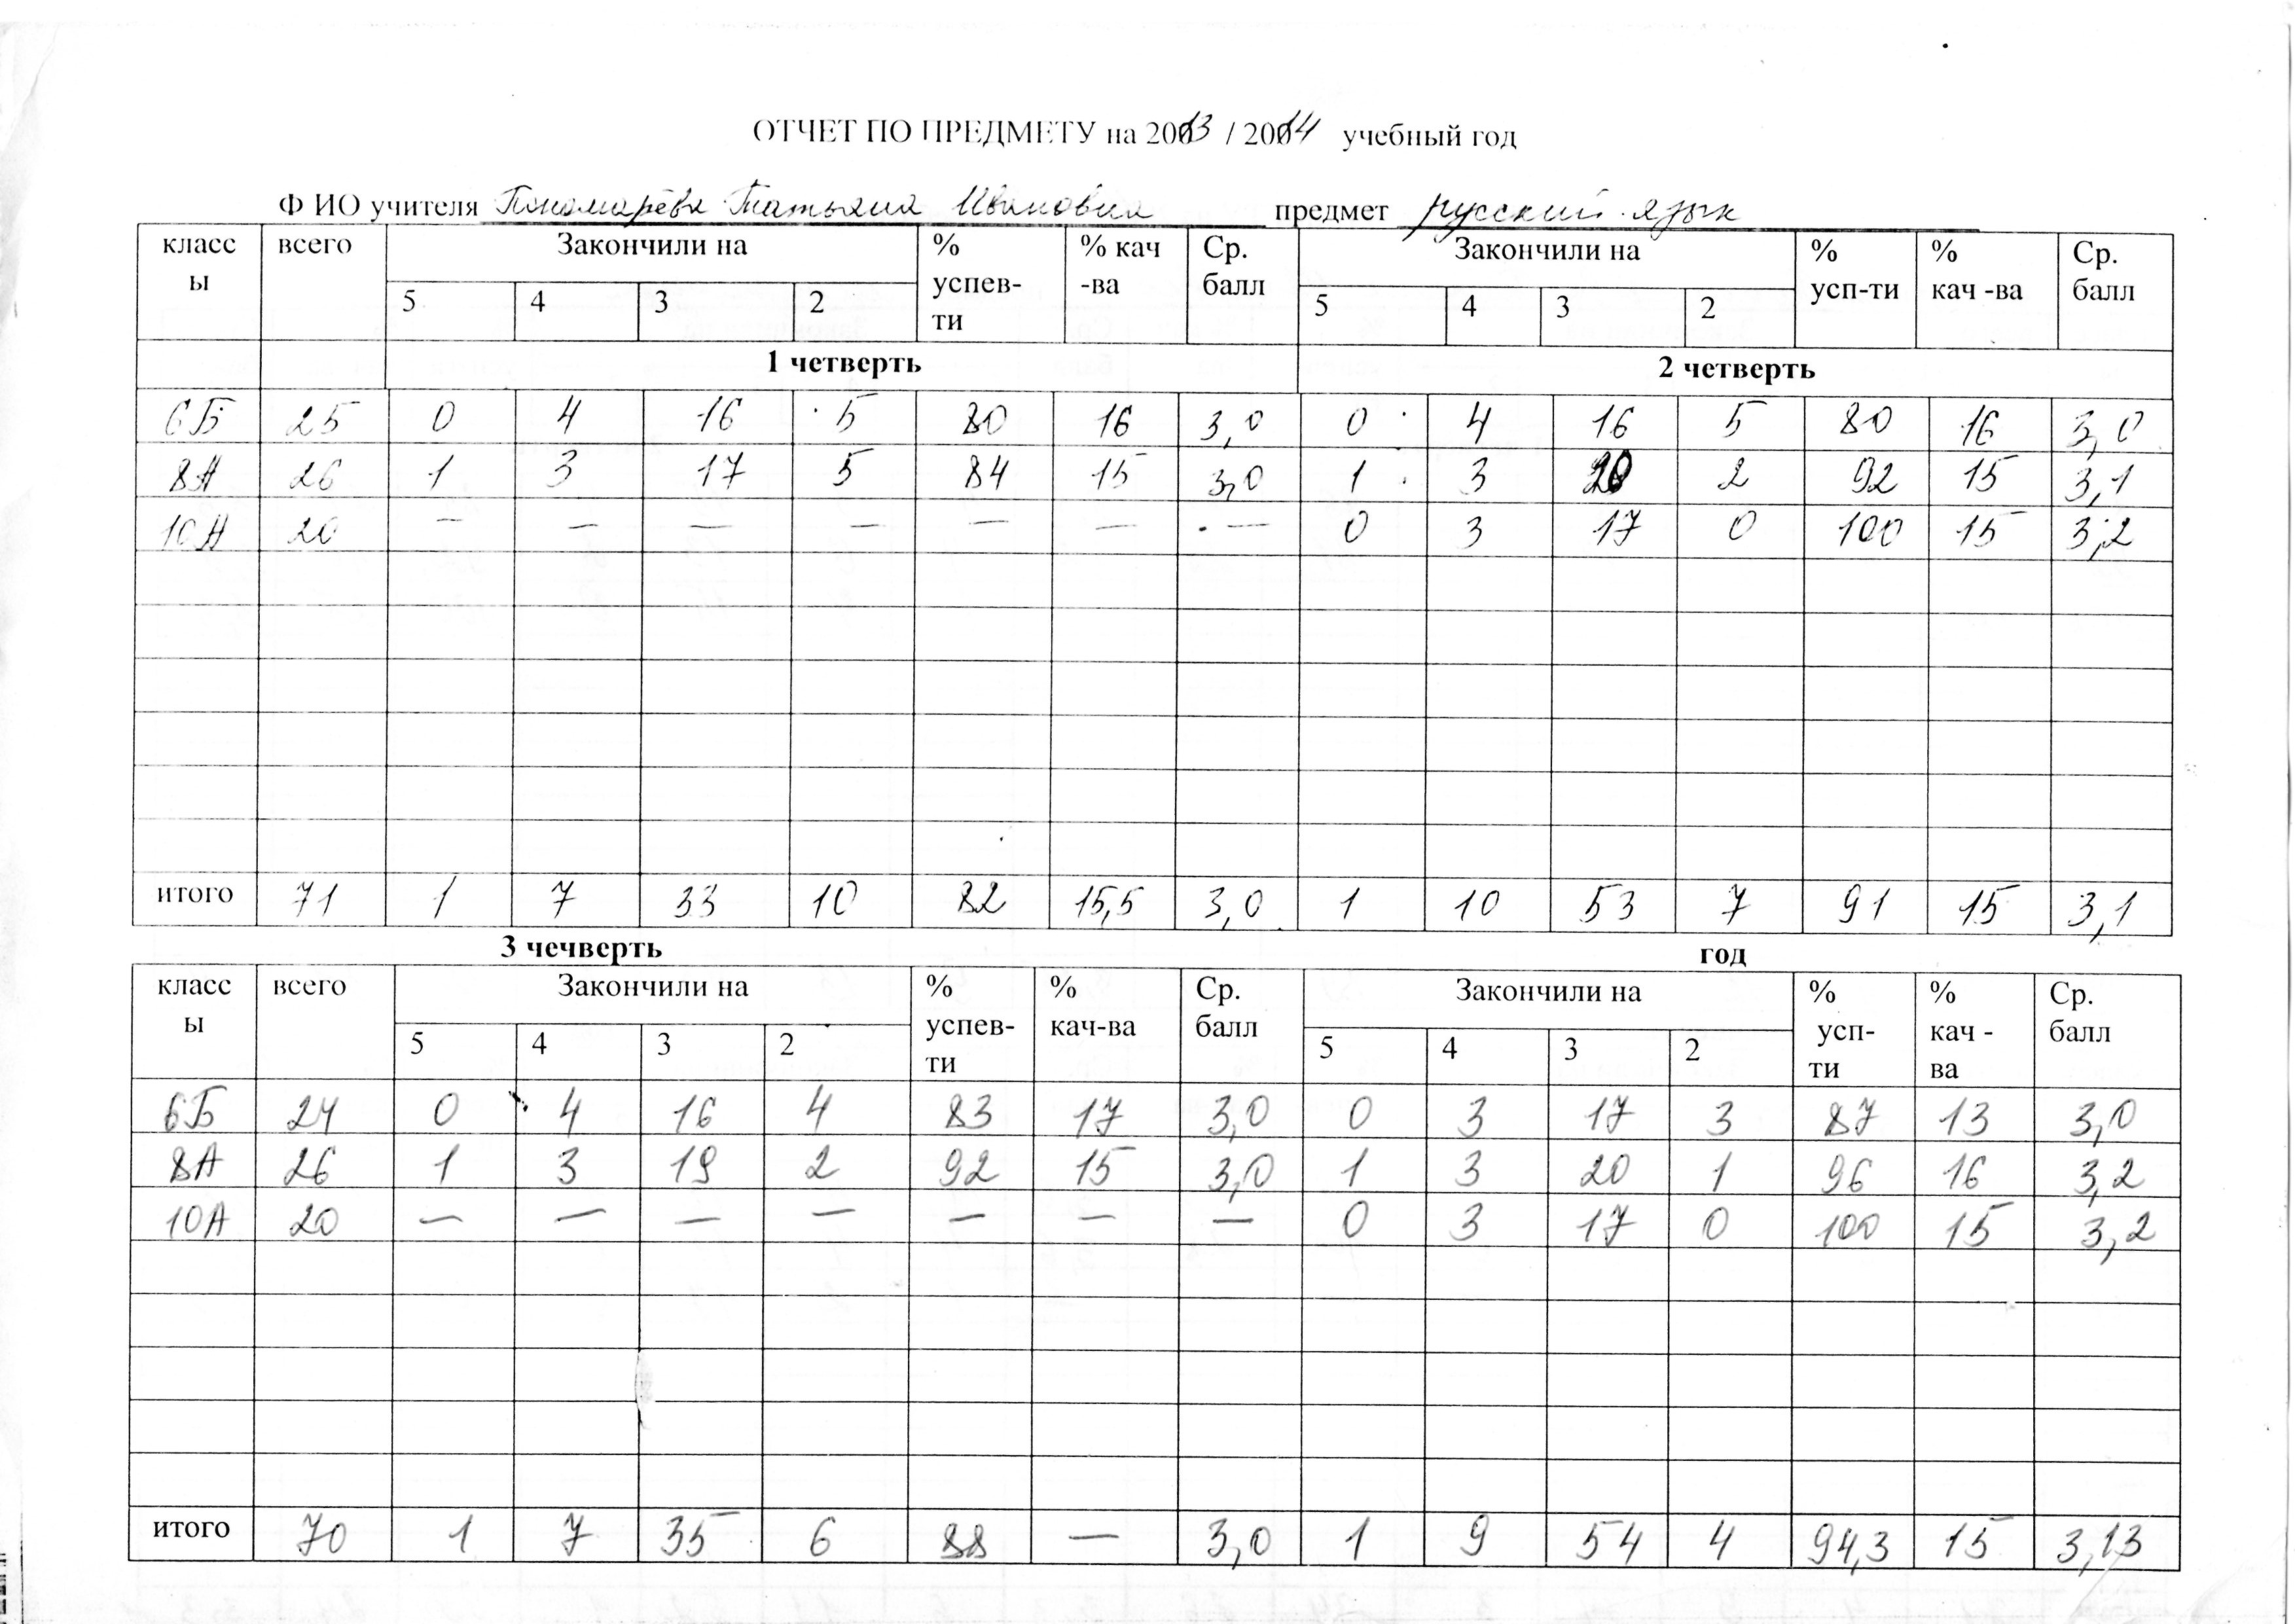 ОТЧЕТ ПО ПРЕДМЕТУ на 2013 / 2014 учебный год
Ф ИО учителя Пономарёва Татьяна Ивановна предмет русский язык
классы всего Закончили на % успев-ти % кач-ва Ср. балл Закончили на % усп-ти % кач -ва Ср. балл
5 4 3 2 5 4 3 2
1 четверть 2 четверть
6Б 25 0 4 16 5 80 16 3,0 0 4 16 5 80 16 3,0
8А 26 1 3 17 5 84 15 3,0 1 3 20 2 92 15 3,1
10А 20 — — — — — — — 0 3 17 0 100 15 3,2
итого 71 1 7 33 10 82 15,5 3,0 1 10 53 7 91 15 3,1
3 чечверть год
классы всего Закончили на % успев-ти % кач-ва Ср. балл Закончили на % усп-ти % кач -ва Ср. балл
5 4 3 2 5 4 3 2
6Б 24 0 4 16 4 83 17 3,0 0 3 17 3 87 13 3,0
8А 26 1 3 19 2 92 15 3,0 1 3 20 1 96 16 3,2
10А 20 — — — — — — — 0 3 17 0 100 15 3,2
итого 70 1 7 35 6 88 — 3,0 1 9 54 4 94,3 15 3,13